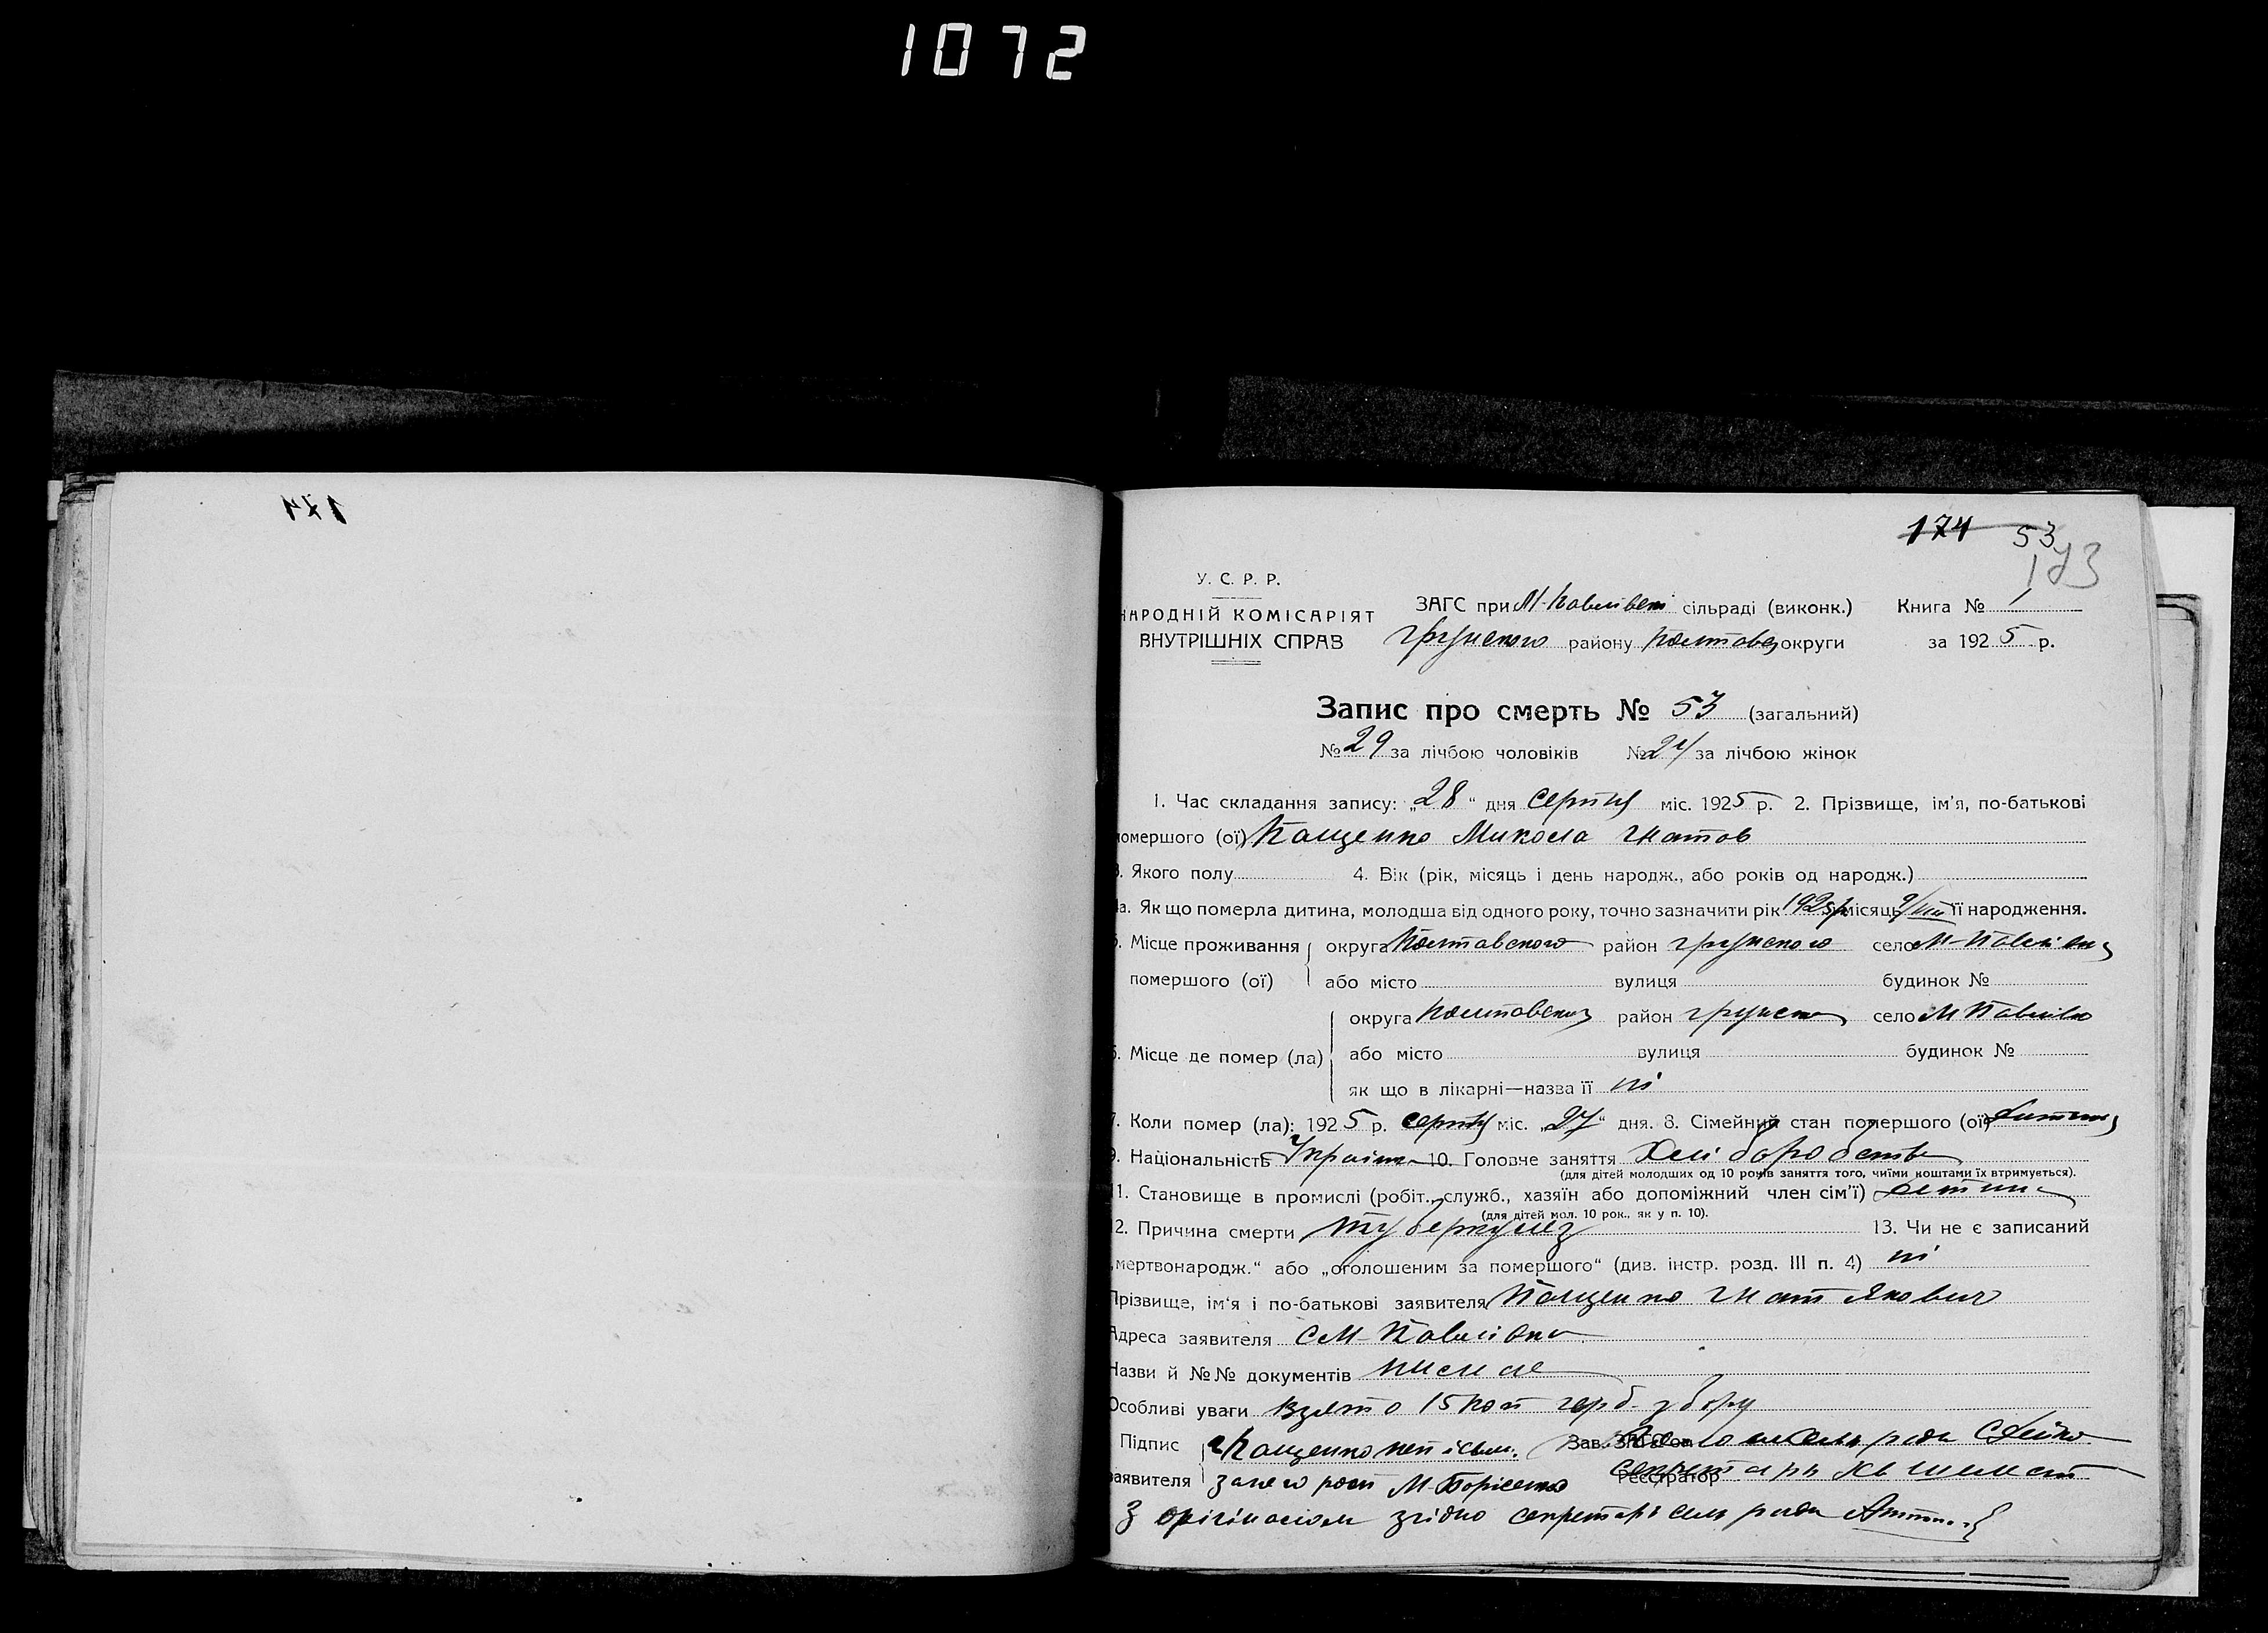 1072
174
174 53
173
У. С. Р. Р.
НАРОДНІЙ КОМІСАРІЯТ
ВНУТРІШНІХ СПРАВ
ЗАГС при М-Павлівскі сільраді (виконк.) Книга № 1
Грунського району Полтавс округи за 1925 р.
Запис про смерть № 53 (загальний)
№ 29 за лічбою чоловіків № 24 за лічбою жінок
1. Час складання запису: „28“ дня серпня міс. 1925 р. 2. Прізвище, ім'я, по-батькові
помершого (ої) Кащенко Микола Гнатов
3. Якого полу 4. Вік (рік, місяць і день народж., або років од народж.)
4а. Як що померла дитина, молодша від одного року, точно зазначити рік 1925 р місяць її народження.
5. Місце проживання округа Полтавского район Грунского село М-Павлівка
помершого (ої) або місто вулиця будинок №
округа Полтавский район Грунск село М Павлівка
6. Місце де помер (ла) або місто вулиця будинок №
як що в лікарні—назва її ні
7. Коли помер (ла): 1925 р. серпня міс. „27“ дня. 8. Сімейний стан помершого (ої) дитина
9. Національність Україн 10. Головне заняття Хліборобств
(для дітей молодших од 10 років заняття того, чиїми коштами їх втримується).
11. Становище в промислі (робіт., служб., хазяїн або допоміжний член сім'ї) дитина
(для дітей мол. 10 рок., як у п. 10).
12. Причина смерти туберкульоз 13. Чи не є записаний
„мертвонародж.“ або „оголошеним за помершого“ (див. інстр. розд. III п. 4) ні
Прізвище, ім'я і по-батькові заявителя Кащенко Гнат Якович
Адреса заявителя С М-Павлівка
Назви й №№ документів немає
Особливі уваги взято 15 коп герб. збору
Підпис Кащенко неписьм. Зав. ЗАГСом сельради
заявителя за него рост М-Борисенко Реєстратор секретарь
З орігіналом згідно секретарь сельради